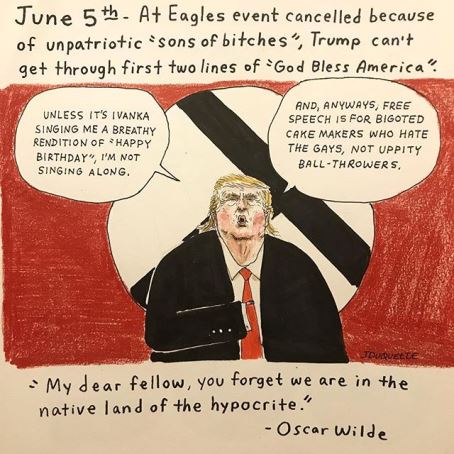 June 5th - At Eagles event cancelled because
of unpatriotic "sons of bitches", Trump can't
get through first two lines of "God Bless America".
UNLESS IT'S IVANKA
SINGING ME A BREATHY
RENDITION OF "HAPPY
BIRTHDAY", I'M NOT
SINGING ALONG.
AND, ANYWAYS, FREE
SPEECH IS FOR BIGOTED
CAKE MAKERS WHO HATE
THE GAYS, NOT UPPITY
BALL-THROWERS.
JDUQUETTE
"My dear fellow, you forget we are in the
native land of the hypocrite."
- Oscar Wilde